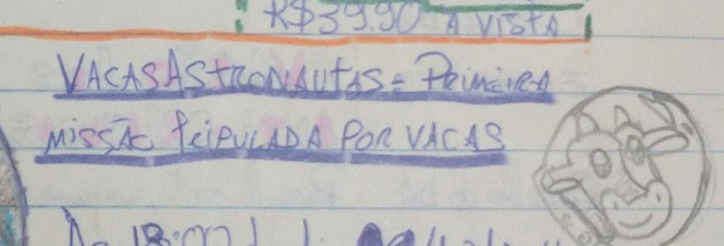 R$39.90 A VISTA
VACASASTRONAUTAS = PRIMEIRA
MISSÃO TRIPULADA POR VACAS
18:00